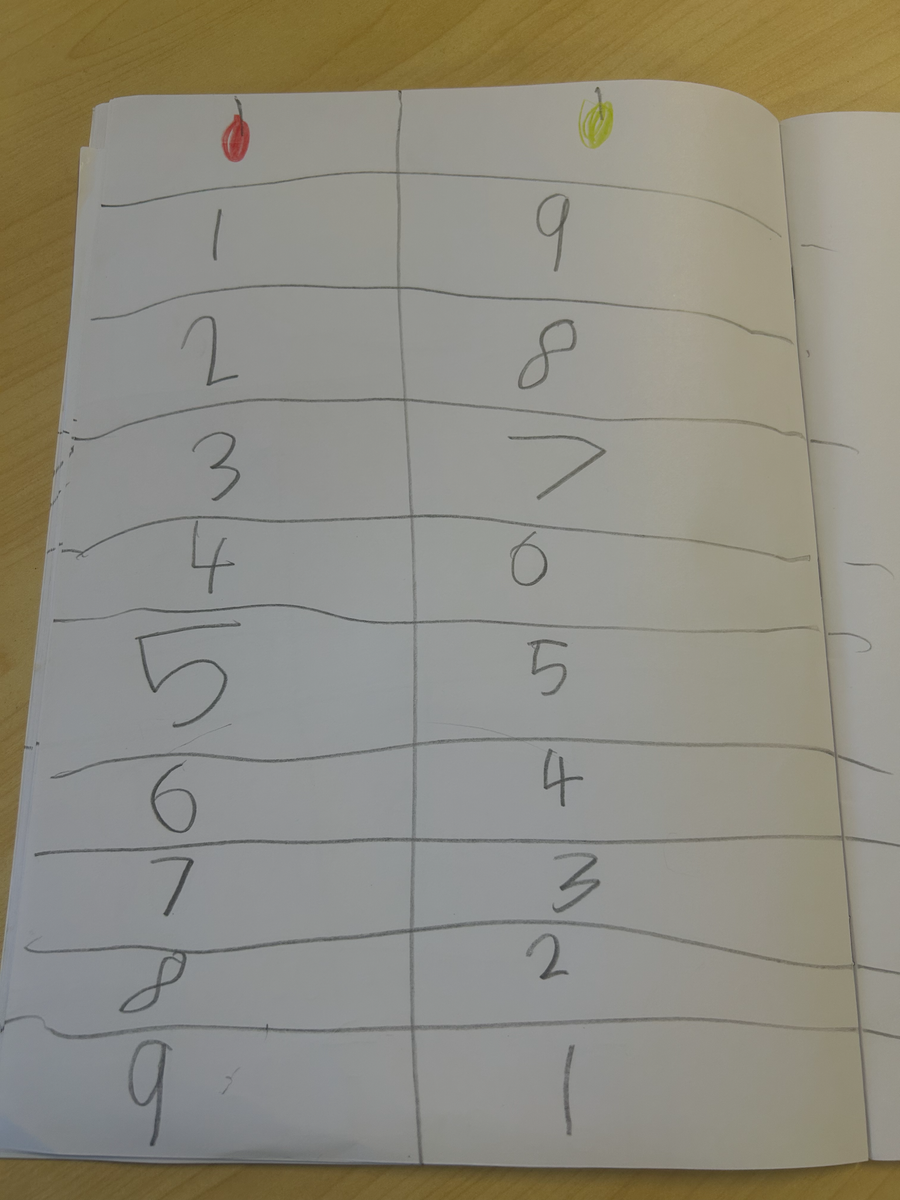 1 9
2 8
3 7
4 6
5 5
6 4
7 3
8 2
9 1